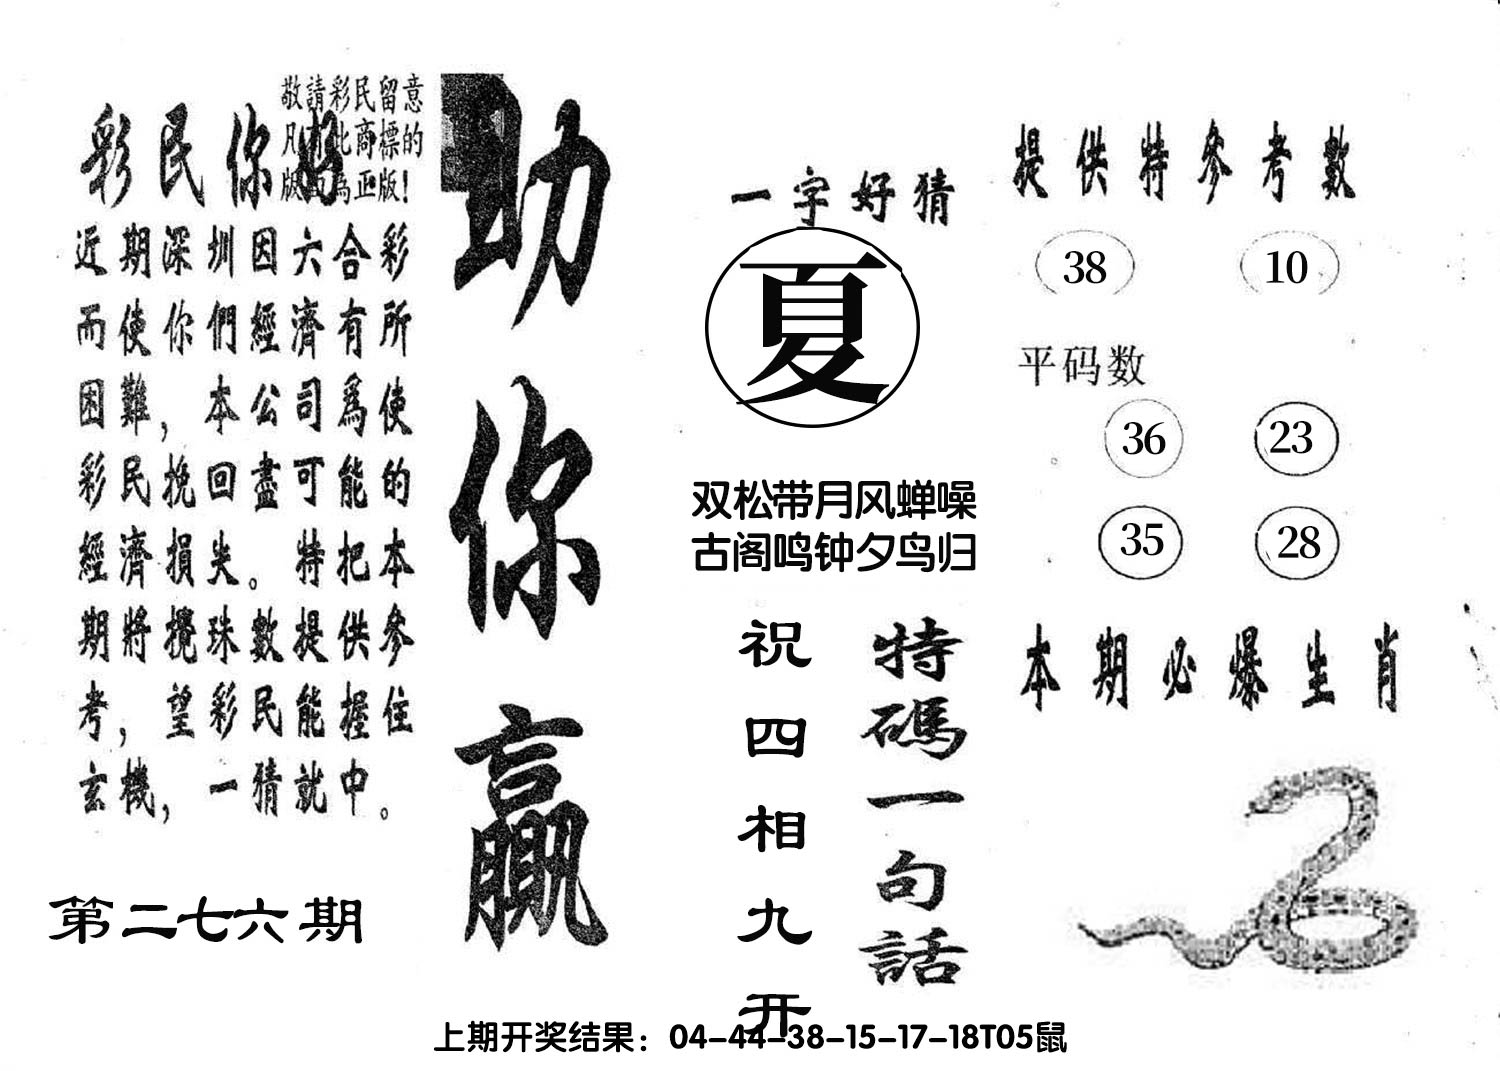 敬請彩民留意
凡有此商標的
版面為正版!
彩民你好
近期深圳因六合彩
而使你們經濟有所
困難，本公司爲使
彩民挽回盡可能的
經濟損失。特把本
期將攪珠數提供參
考，望彩民能握住
玄機，一猜就中。
第二七六期
助你贏
一字好猜
夏
双松带月风蝉噪
古阁鸣钟夕鸟归
特碼一句話
祝四相九开
提供特參考數
38 10
平码数
36 23
35 28
本期必爆生肖
上期开奖结果：04-44-38-15-17-18T05鼠